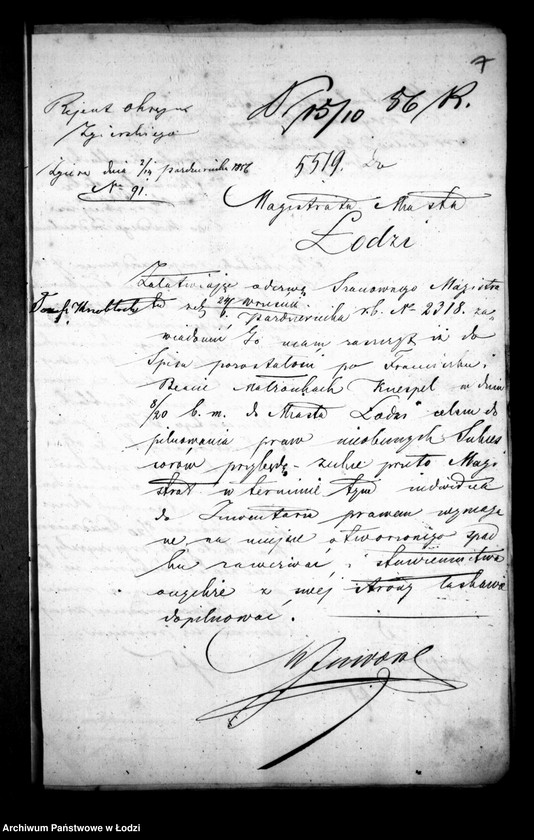 7
Rejent Okręgu
Zgierskiego
Zgierz dnia 2/14 Października 1856
No 91.
N 15/10 56 R.
5519. Do
Magistratu Miasta
Łodzi
Załatwiając odezwę Szanownego Magistra
Józef Knobloch
tu z d. 24 Września / 6 Października r.b. No 2318. za
wiadomić Go mam zaszczyt iż do
Spisu pozostałości po Franciszku i
Beacie Małżonkach Knespel w dniu
8/20 b. m. do Miasta Łodzi celem do
pilnowania praw nieobecnych Sukces
sorów przybędę – zechce przeto Magi
strat w terminie tym indywidua
do Inwentarza prawem wymaga
ne na miejsce otworzonego spad
ku zawezwać, i stawiennictwa
onychże z swej strony łaskawie
dopilnować.